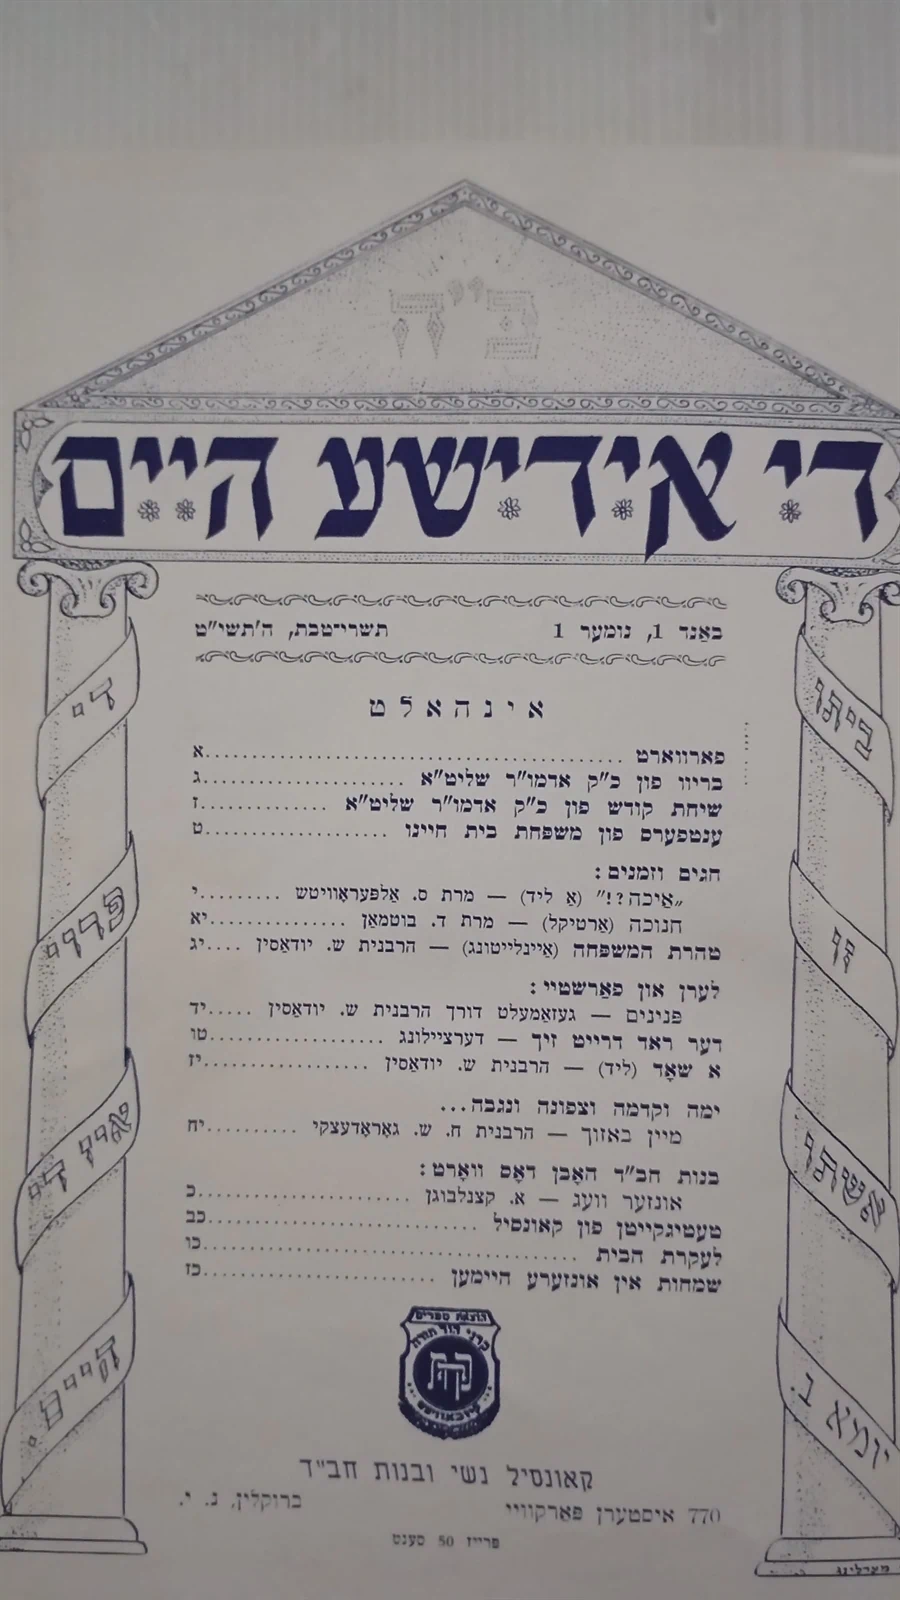 ב״ה
די אידישע היים
באַנד 1, נומער 1 תשרי־טבת, ה'תשי"ט
אינהאלט
פארווארט ........ א
בריוו פון כ"ק אדמו"ר שליט"א ........ ג
שיחת קודש פון כ"ק אדמו"ר שליט"א ........ ז
ענטפערס פון משפחת בית חיינו ........ ט
חגים וזמנים:
„איכה?!" (אַ ליד) — מרת ס. אַלפּעראָוויטש ........ י
חנוכה (אַרטיקל) — מרת ד. בוטמאַן ........ יא
טהרת המשפחה (אַיינלייטונג) — הרבנית ש. יודאַסין ..... יג
לערן און פאַרשטיי:
פנינים — געזאַמעלט דורך הרבנית ש. יודאַסין ..... יד
דער ראד דרייט זיך — דערציילונג ........ טו
א שאָד (ליד) — הרבנית ש. יודאַסין ........ יז
ימה וקדמה וצפונה ונגבה...
מיין באזוך — הרבנית ח. ש. גאָראָדעצקי ........ יח
בנות חב"ד האָבן דאָס וואָרט:
אונזער וועג — א. קצנלבוגן ........ כ
טעטיגקייטן פון קאונסיל ........ כב
לעקרת הבית ........ כו
שמחות אין אונזערע היימען ........ כז
ביתו
זו
אשתו
יומא ב.
די
פרוי
אין די
היים.
הוצאת ספרים
קרני הוד תורה
קהת
ליובאוויטש
קאונסיל נשי ובנות חב"ד
770 איסטערן פּאַרקוויי ברוקלין, נ. י.
פרייז 50 סענט